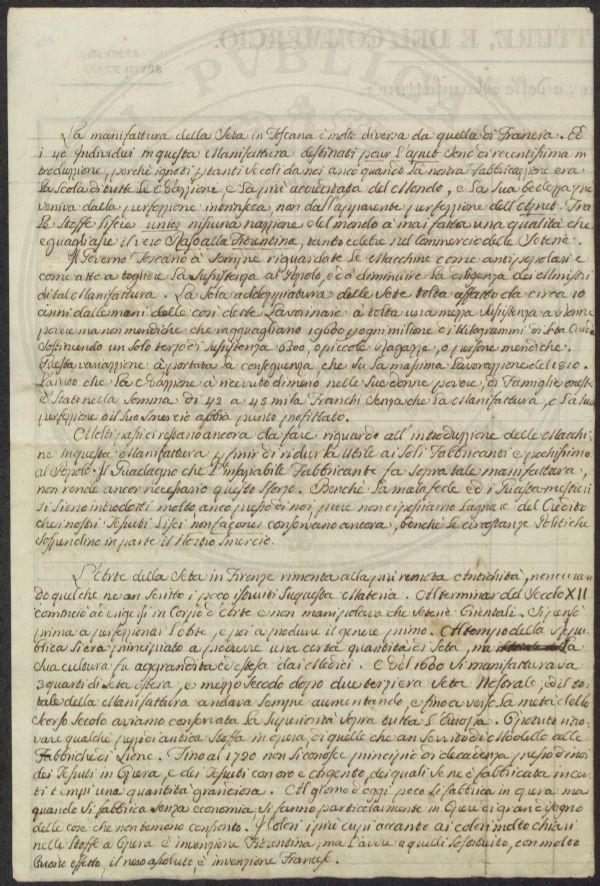 La manifattura della Seta in Toscana è molto diversa da quella di Francia. Ed
i 40 Individui in questa Manifattura destinati pour l'ajout sono di recentissima in
troduzzione, perchè ignoti p tanti secoli da noi anco quando la nostra fabbricazione era
la Scola di tutte le nazzioni, e la più accreditata del Mondo, e la sua bellezza pro
veniva dalla perfezzione intrinseca non dall'apparente perfezzione dell'ajout. Fra
le Stoffe liscie unies nissuna nazzione del mondo à mai fatta una qualità che
eguagliasse il vero Raso alla Fiorentina, tanto celebre nel Commercio delle Seterie.
Il Governo Toscano à sempre riguardate le Macchine come antipopolari e
come atte a togliere la sussistenza al Popolo, ed a diminuire la esigenza dei Ministri
di tal Manifattura. La sola addoppiatura delle Sete tolta affatto da circa 10
anni dalle mani delle così dette Lavorinare à tolta una mezza sussistenza a donne
povere ma non mendiche che ragguagliano ogni mille e i Kilogrammi di Seta Cruda
sostituendo un solo terzo di sussistenza 6300, o piccole Ragazze, o persone mendiche.
Questa variazzione à portata la conseguenza, che su la massima lavorazzione del 1810.
l'avuto che la Nazzione à ricevuto di meno nelle sue donne povere, di Famiglie oneste
è stato nella somma di 42 a 43 mila Franchi senza che la Manifattura, o la sua
perfezzione o il suo smercio abbia punto profittato.
Molti passi ci restano ancora da fare riguardo all'introduzione delle Macchi
ne in questa Manifattura p finir di ridurla utile ai soli Fabbricanti e pochissimo
al Popolo. Il Guadagno che l'insaziabile Fabbricante fa sopra tale manifattura,
non rende ancor necessario questo sforzo. Benchè la mala fede ed i Guasta-mestieri
si sieno introdotti molto anco presso di noi, pure non ci possiamo lagnare del Credito
che i nostri Tessuti Lisci non façonés conservano ancora, benchè le circostanze Politiche
sospendino in parte il Nostro Smercio.
L'Arte della Seta in Firenze rimonta alla più remota Antichità, non curan
do quel che ne an scritto i poco istruiti su questa Materia. Al terminar del Secolo XII
cominciò ad erigersi in Corpo d'Arte e non manipolava che Seterie Orientali. Si pensò
prima a perfezzionar l'Arte, e poi a produrre il genere primo. Al tempo della Repub
blica si era principiato a produrre una certa quantità di Seta, ma la
sua cultura fu aggrandita ed estesa dai Medici. E del 1600 si manifatturava
3 quarti di Seta estera, e mezzo secolo dopo due terzi era Seta Nostrale, ed il to
tale della Manifattura andava sempre aumentando, e fino a verso la metà dello
scorso Secolo aviamo conservata la superiorità sopra tutta l'Europa. Ò potuto ritro
vare qualche pezzo di antica Stoffa in opera di quelle che an servito di Modello alle
Fabbriche di Lione. Fino al 1720 non si conosce principio di decadenza presso di noi
dei Tessuti in Opera, e dei Tessuti con oro e argento, dei quali se ne è fabbricata in cer
ti tempi una quantità grandiosa. Al giorno d'oggi poco si fabbrica in opera ma
quando si fabbrica senza economia si fanno particolarmente in Opere di gran disegno
delle cose che non temono confronto. I Colori i più cupi accanto ai colori molto chiari
nelle Stoffe a Opera è invenzione Fiorentina; ma l'avere a quelli sostituito, con molto
buono effetto, il nero assoluto, è invenzione Francese.